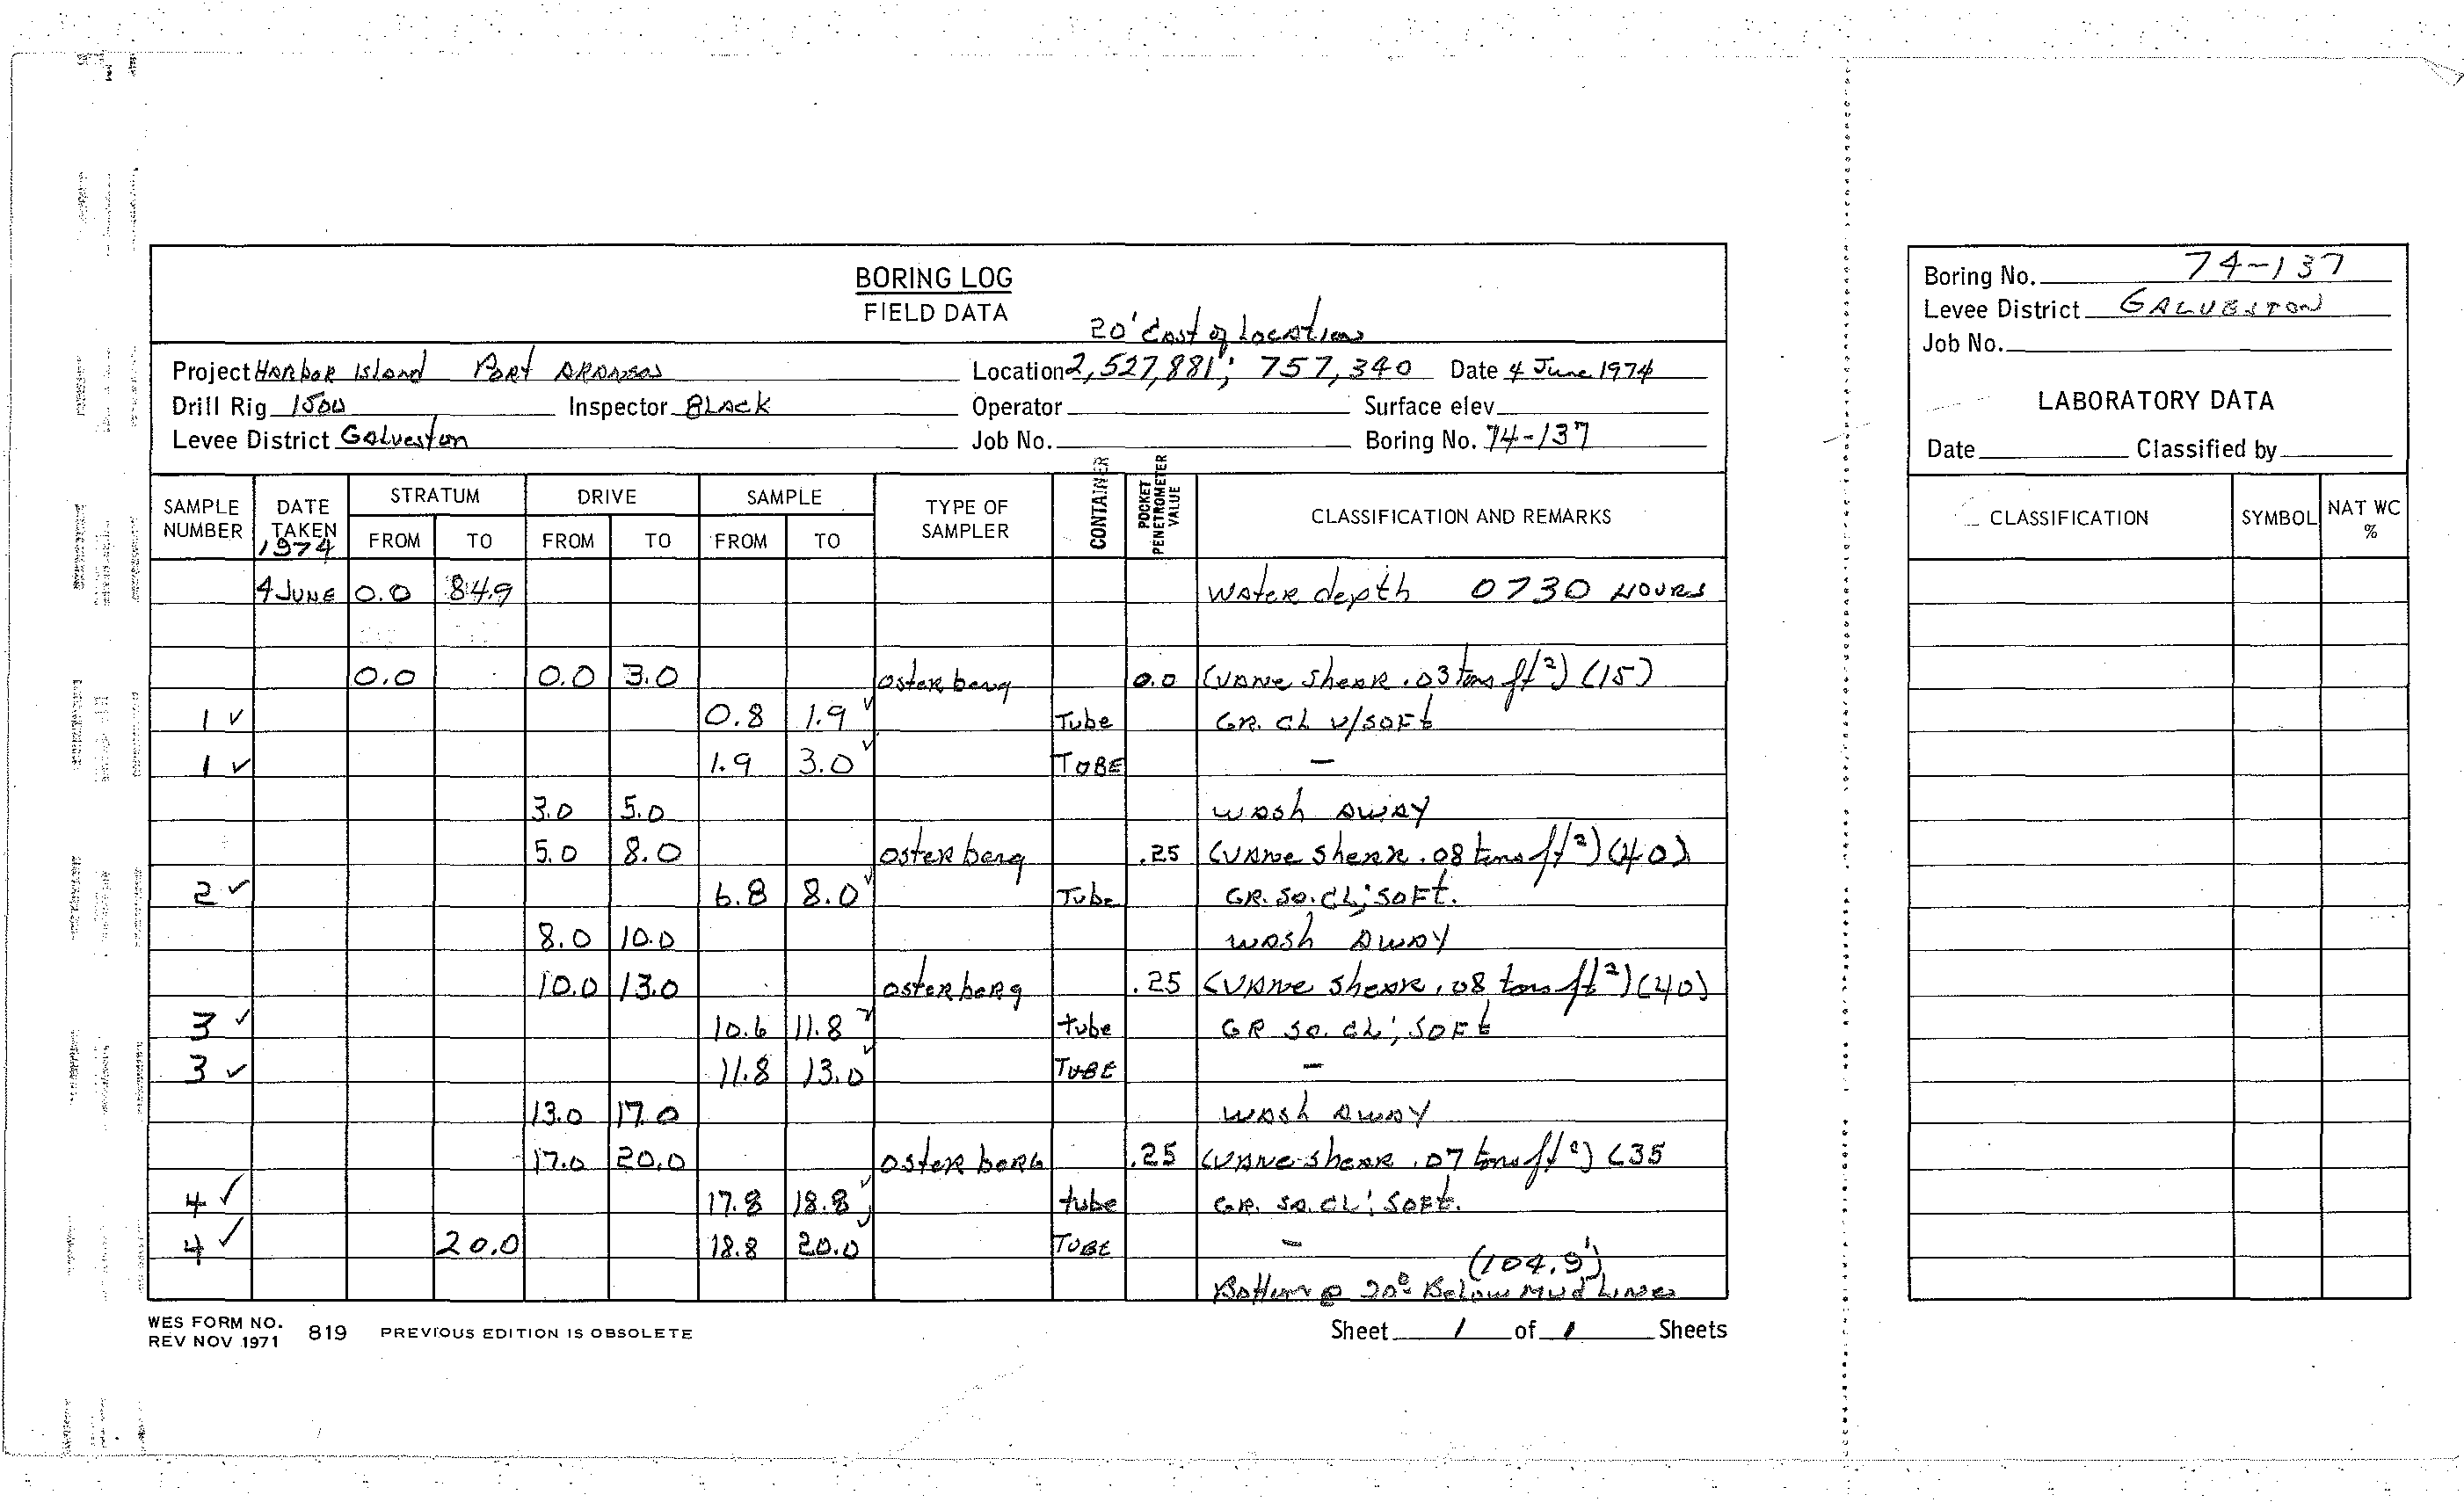 BORING LOG
FIELD DATA
20' East of Location
Project Harbor Island Port Aransas Location 2,527,881'; 757,340 Date 4 June 1974
Drill Rig 1500 Inspector Black Operator Surface elev.
Levee District Galveston Job No. Boring No. 74-137
SAMPLE NUMBER DATE TAKEN 1974 STRATUM FROM TO DRIVE FROM TO SAMPLE FROM TO TYPE OF SAMPLER CONTAINER POCKET PENETROMETER VALUE CLASSIFICATION AND REMARKS
4 JUNE 0.0 84.9 Water depth 0730 HOURS
0.0 0.0 3.0 osterberg 0.0 (VANE Shear .03 tons ft²) (15)
1 ✓ 0.8 1.9 ✓ Tube GR. CL v/SOFt
1 ✓ 1.9 3.0 ✓ TUBE –
3.0 5.0 wash AWAY
5.0 8.0 osterberg .25 (VANE Shear .08 tons ft²) (40)
2 ✓ 6.8 8.0 ✓ Tube GR. SA. CL; SOFt.
8.0 10.0 wash AWAY
10.0 13.0 osterberg .25 (VANE shear .08 tons ft²) (40)
3 ✓ 10.6 11.8 ✓ tube GR SA. CL; SOFt
3 ✓ 11.8 13.0 ✓ TUBE –
13.0 17.0 wash AWAY
17.0 20.0 osterberg .25 (VANE shear .07 tons ft²) (35
4 ✓ 17.8 18.8 ✓ tube GR. SA. CL; SOFt.
4 ✓ 20.0 18.8 20.0 ✓ TUBE –
(104.9')
Bottom @ 20.0 Below Mud Line
WES FORM NO. 819 PREVIOUS EDITION IS OBSOLETE
REV NOV 1971
Sheet 1 of 1 Sheets
Boring No. 74-137
Levee District GALVESTON
Job No.
LABORATORY DATA
Date Classified by
CLASSIFICATION SYMBOL NAT WC %